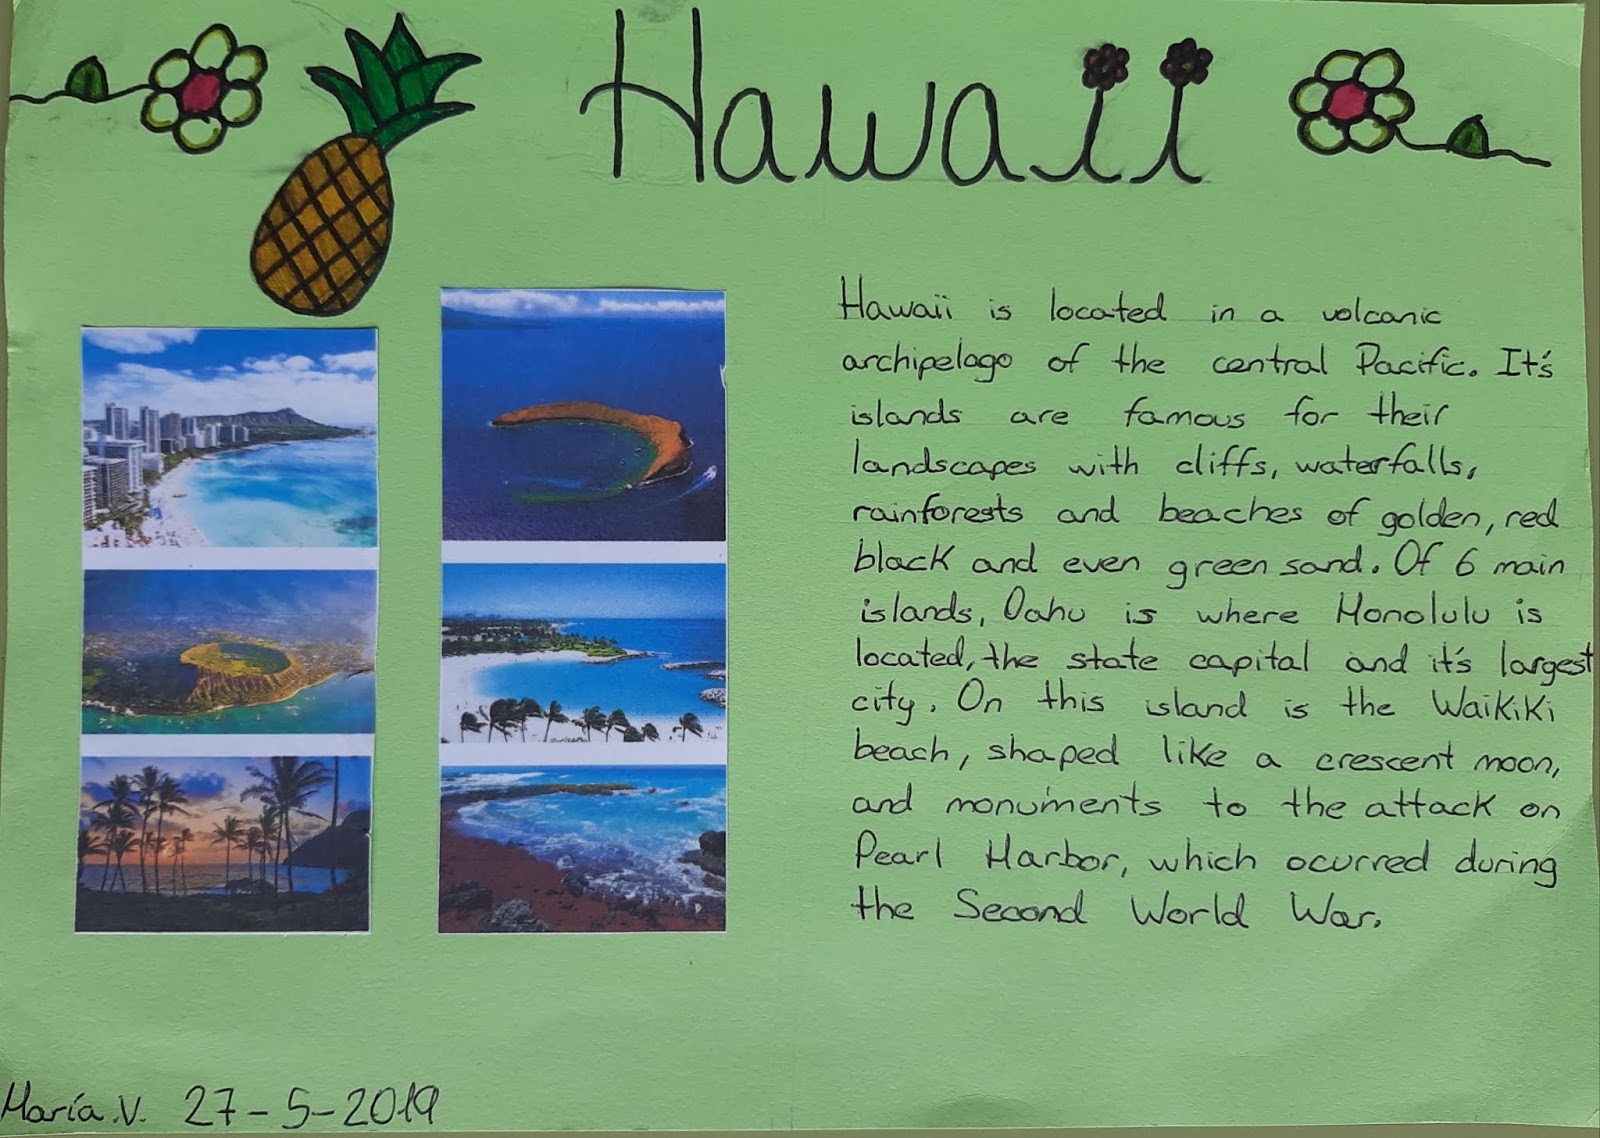 Hawaii
Hawaii is located in a volcanic
archipelago of the central Pacific. It's
islands are famous for their
landscapes with cliffs, waterfalls,
rainforests and beaches of golden, red
black and even green sand. Of 6 main
islands, Oahu is where Honolulu is
located, the state capital and it's largest
city. On this island is the Waikiki
beach, shaped like a crescent moon,
and monuments to the attack on
Pearl Harbor, which ocurred during
the Second World War.
María.V. 27-5-2019